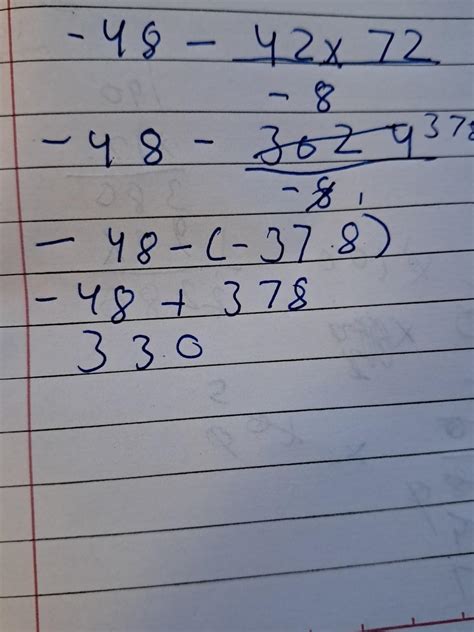 -48 - 42x72
-8
-48 - 3024 378
-8 1
- 48-(-378)
-48 + 378
330